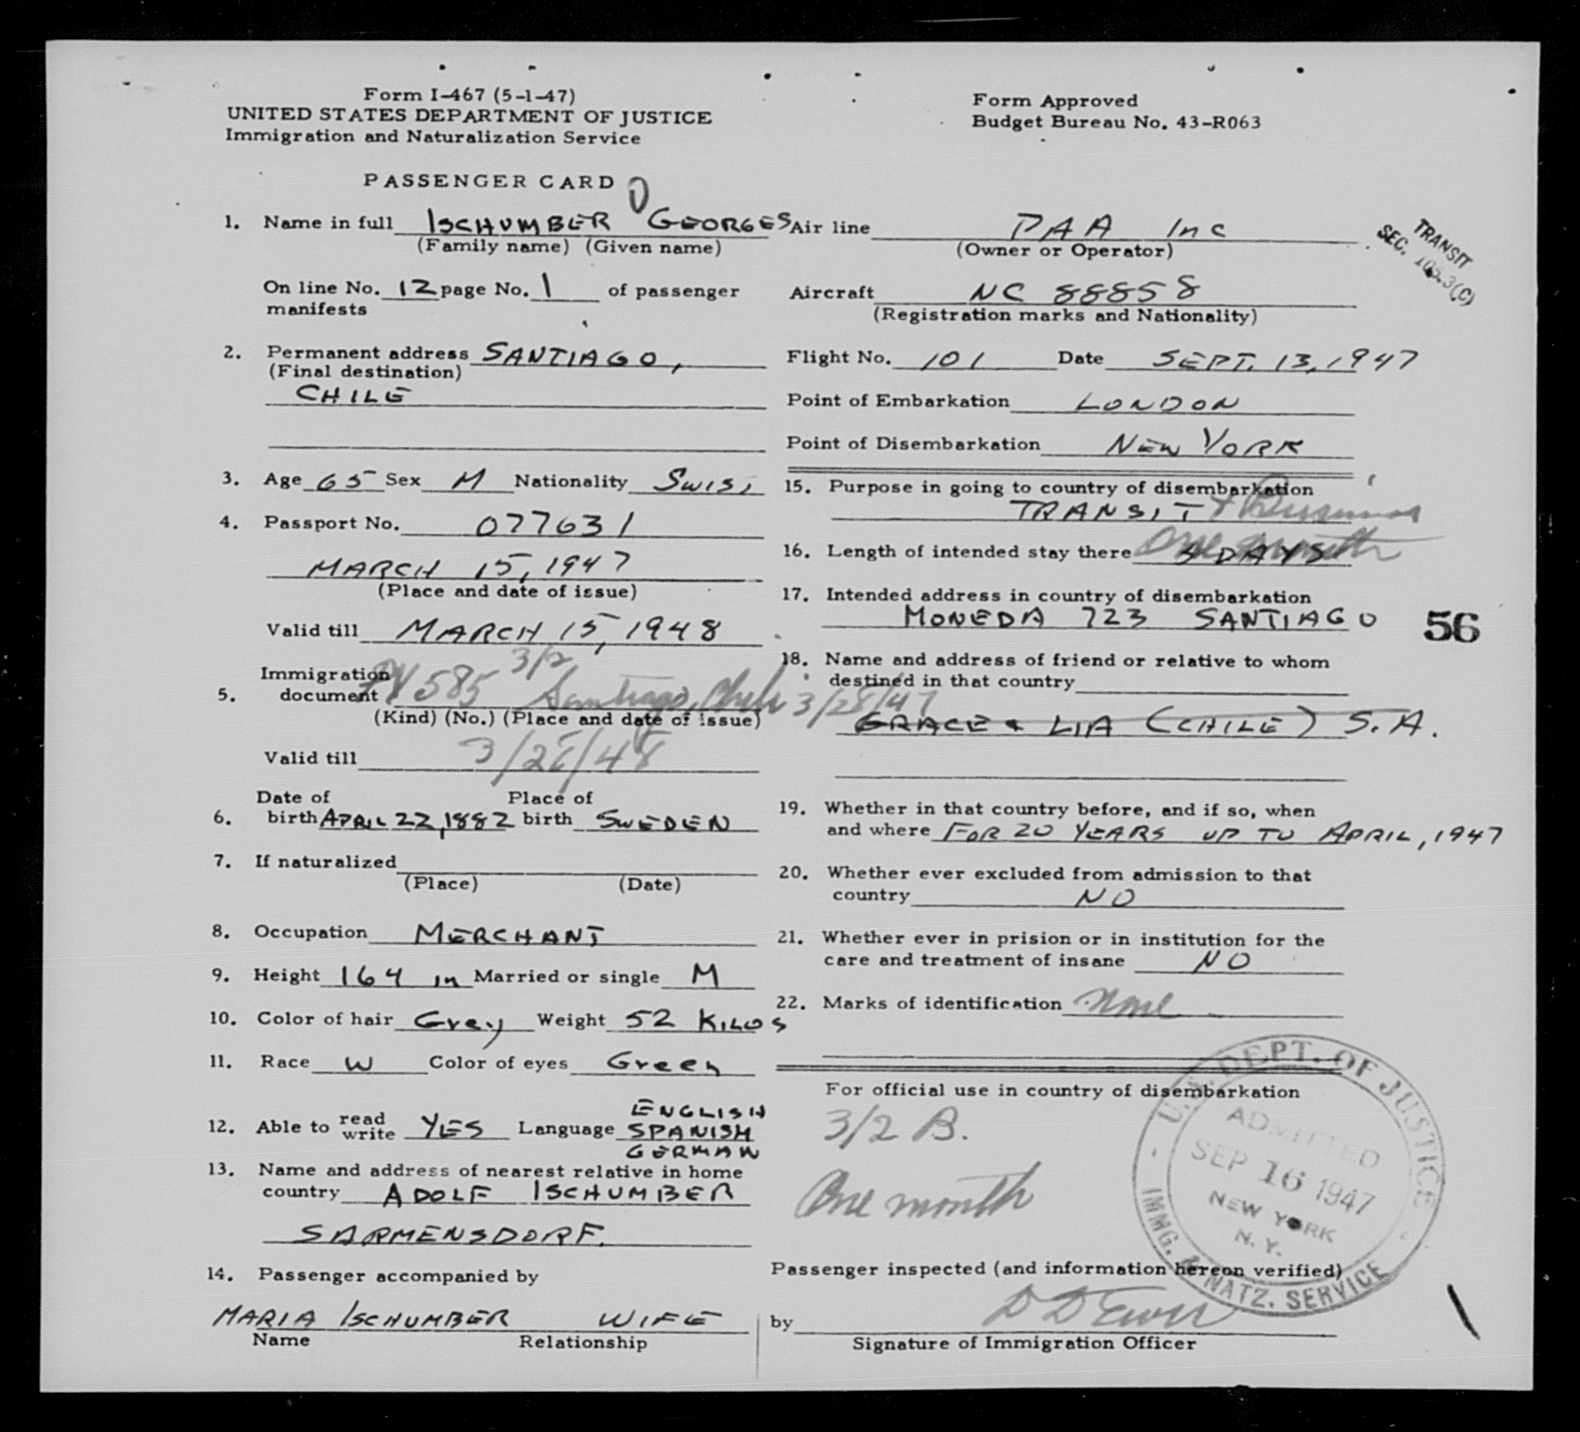 Form I-467 (5-1-47)
UNITED STATES DEPARTMENT OF JUSTICE
Immigration and Naturalization Service
Form Approved
Budget Bureau No. 43-R063
PASSENGER CARD
1. Name in full ISCHUMBER GEORGES
(Family name) (Given name)
On line No. 12 page No. 1 of passenger
manifests
2. Permanent address SANTIAGO,
(Final destination)
CHILE
3. Age 65 Sex M Nationality SWISS
4. Passport No. 077631
MARCH 15, 1947
(Place and date of issue)
Valid till MARCH 15, 1948
Immigration
5. document PV 585 3/2 Santiago, Chile 3/28/47
(Kind) (No.) (Place and date of issue)
Valid till 3/28/48
Date of Place of
6. birth APRIL 22, 1882 birth SWEDEN
7. If naturalized
(Place) (Date)
8. Occupation MERCHANT
9. Height 164 in Married or single M
10. Color of hair Grey Weight 52 KILOS
11. Race W Color of eyes Green
12. Able to read write YES Language ENGLISH
SPANISH
GERMAN
13. Name and address of nearest relative in home
country ADOLF ISCHUMBER
SARMENSDORF.
14. Passenger accompanied by
MARIA ISCHUMBER WIFE
Name Relationship
Air line PAA Inc
(Owner or Operator)
TRANSIT
SEC.
Aircraft NC 88858
(Registration marks and Nationality)
Flight No. 101 Date SEPT. 13, 1947
Point of Embarkation LONDON
Point of Disembarkation NEW YORK
15. Purpose in going to country of disembarkation
TRANSIT + Business
16. Length of intended stay there One month DAYS
17. Intended address in country of disembarkation
MONEDA 723 SANTIAGO
56
18. Name and address of friend or relative to whom
destined in that country
GRACE & LIA (CHILE) S.A.
19. Whether in that country before, and if so, when
and where FOR 20 YEARS UP TO APRIL, 1947
20. Whether ever excluded from admission to that
country NO
21. Whether ever in prision or in institution for the
care and treatment of insane NO
22. Marks of identification None
For official use in country of disembarkation
3/2 B.
One month
U.S. DEPT. OF JUSTICE
ADMITTED
SEP 16 1947
NEW YORK
N. Y.
IMMG. & NATZ. SERVICE
Passenger inspected (and information hereon verified)
by
Signature of Immigration Officer